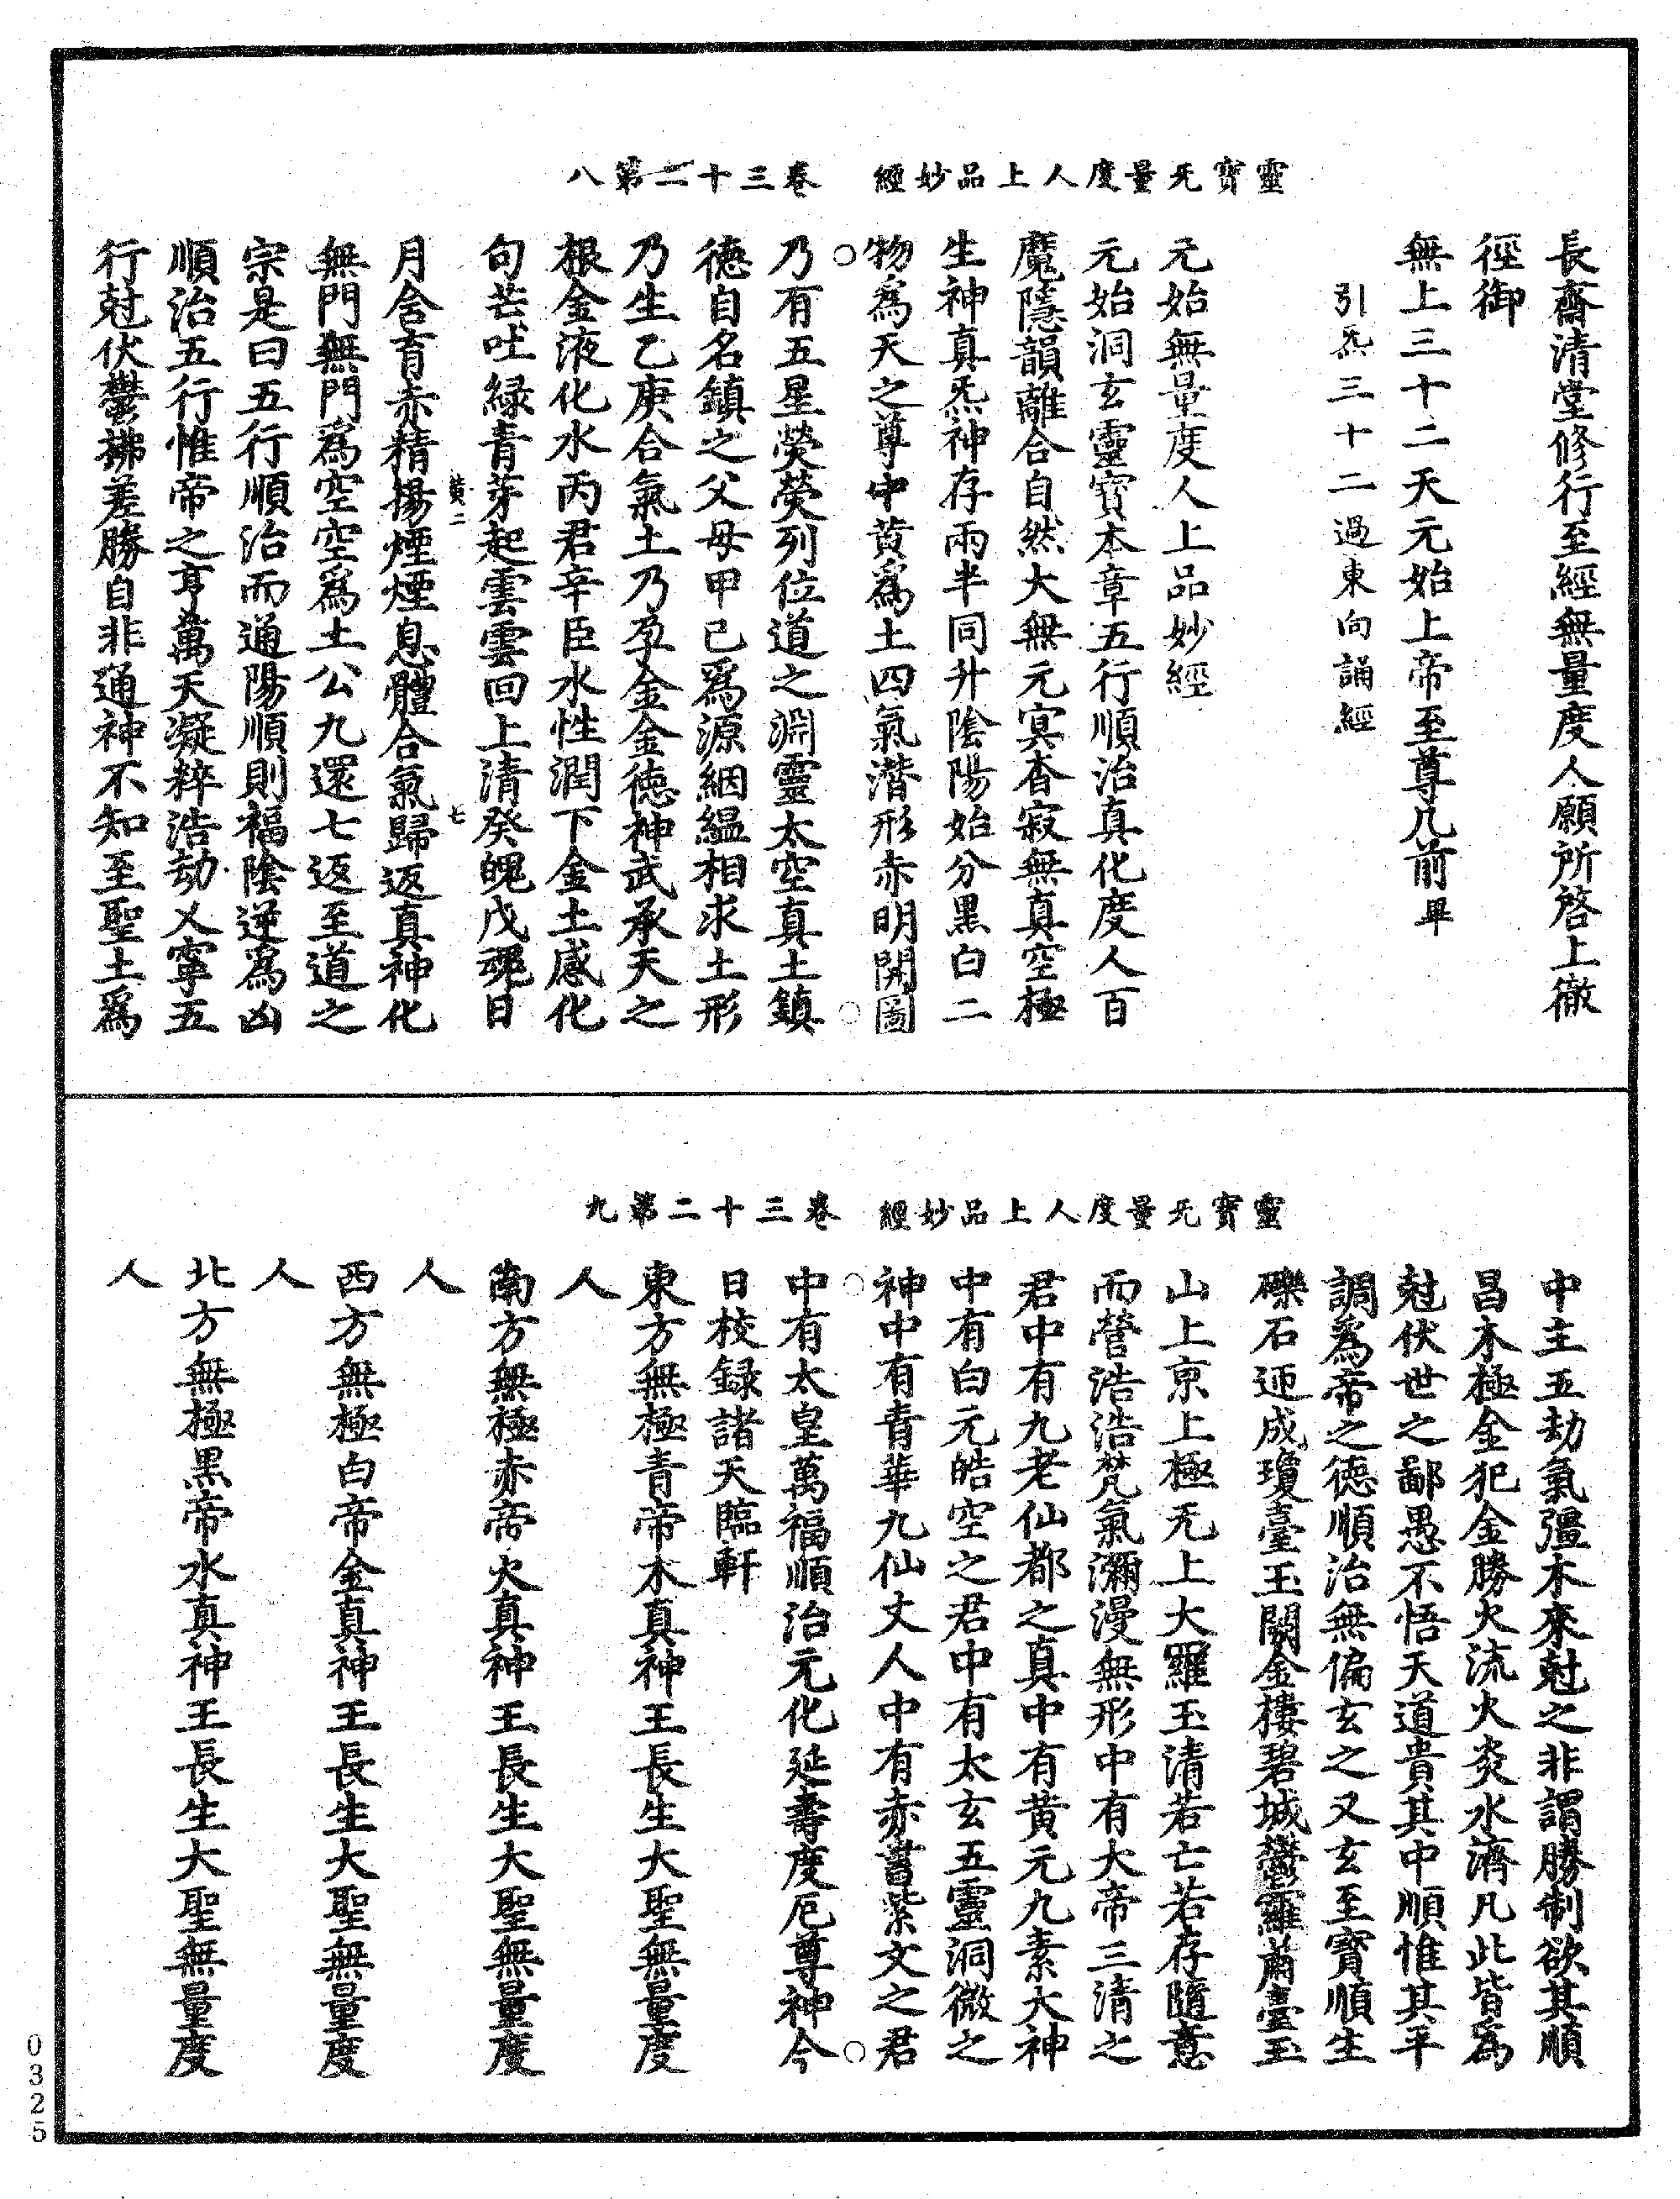 靈寶无量度人上品妙經　卷三十二第八
長齋清堂修行至經無量度人願所啓上徹
徑御
無上三十二天元始上帝至尊几前畢
引炁三十二過東向誦經
元始無量度人上品妙經
元始洞玄靈寶本章五行順治真化度人百
魔隱韻離合自然大無元冥杳寂無真空極
生神真炁神存兩半同升陰陽始分黑白二
物爲天之尊中黄爲土四氣潛形赤明開圖
乃有五星熒熒列位道之淵靈太空真土鎮
德自名鎮之父母甲己爲源絪緼相求土形
乃生乙庚合氣土乃孕金金德神武承天之
根金液化水丙君辛臣水性潤下金土感化
句芒吐緑青芽起雲雲回上清癸魄戊魂日
黄二　七
月含育赤精揚煙煙息體合氣歸返真神化
無門無門爲空空爲土公九還七返至道之
宗是曰五行順治而通陽順則福陰逆爲凶
順治五行惟帝之亨萬天凝粹浩劫乂寧五
行尅伏鬱拂差勝自非通神不知至聖土爲
靈寶无量度人上品妙經　卷三十二第九
中主五劫氣彊木來尅之非謂勝制欲其順
昌木極金犯金勝火流火炎水濟凡此皆爲
尅伏世之鄙愚不悟天道貴其中順惟其平
調爲帝之德順治無偏玄之又玄至寶順生
礫石迊成瓊臺玉闕金樓碧城鬱羅蕭臺玉
山上京上極无上大羅玉清若亡若存隨意
而營浩浩梵氣瀰漫無形中有大帝三清之
君中有九老仙都之真中有黄元九素大神
中有白元皓空之君中有太玄五靈洞微之
神中有青華九仙丈人中有赤書紫文之君
中有太皇萬福順治元化延壽度厄尊神今
日校録諸天臨軒
東方無極青帝木真神王長生大聖無量度
人
南方無極赤帝火真神王長生大聖無量度
人
西方無極白帝金真神王長生大聖無量度
人
北方無極黑帝水真神王長生大聖無量度
人
0325